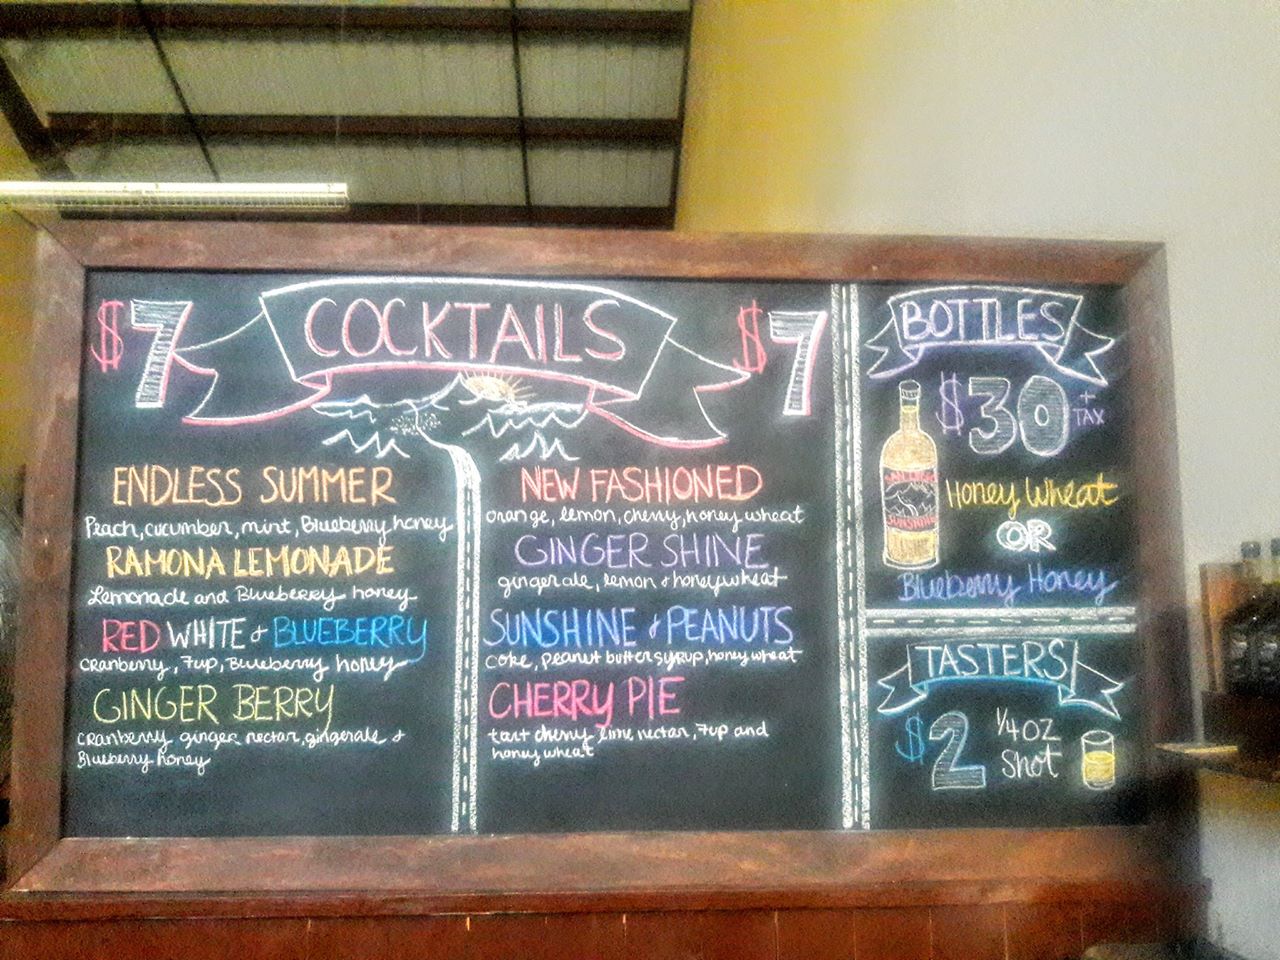 $7 COCKTAILS $7
ENDLESS SUMMER
Peach, cucumber, mint, Blueberry honey
RAMONA LEMONADE
Lemonade and Blueberry honey
RED WHITE & BLUEBERRY
cranberry, 7up, Blueberry honey
GINGER BERRY
cranberry ginger nectar, gingerale &
Blueberry honey
NEW FASHIONED
orange, lemon, cherry, honey wheat
GINGER SHINE
ginger ale, lemon & honeywheat
SUNSHINE & PEANUTS
coke, peanut butter syrup, honey wheat
CHERRY PIE
tart cherry lime nectar, 7up and
honey wheat
BOTTLES
$30 + TAX
SUNSHINE
Honey Wheat
OR
Blueberry Honey
TASTERS
$2 1/4 OZ
Shot